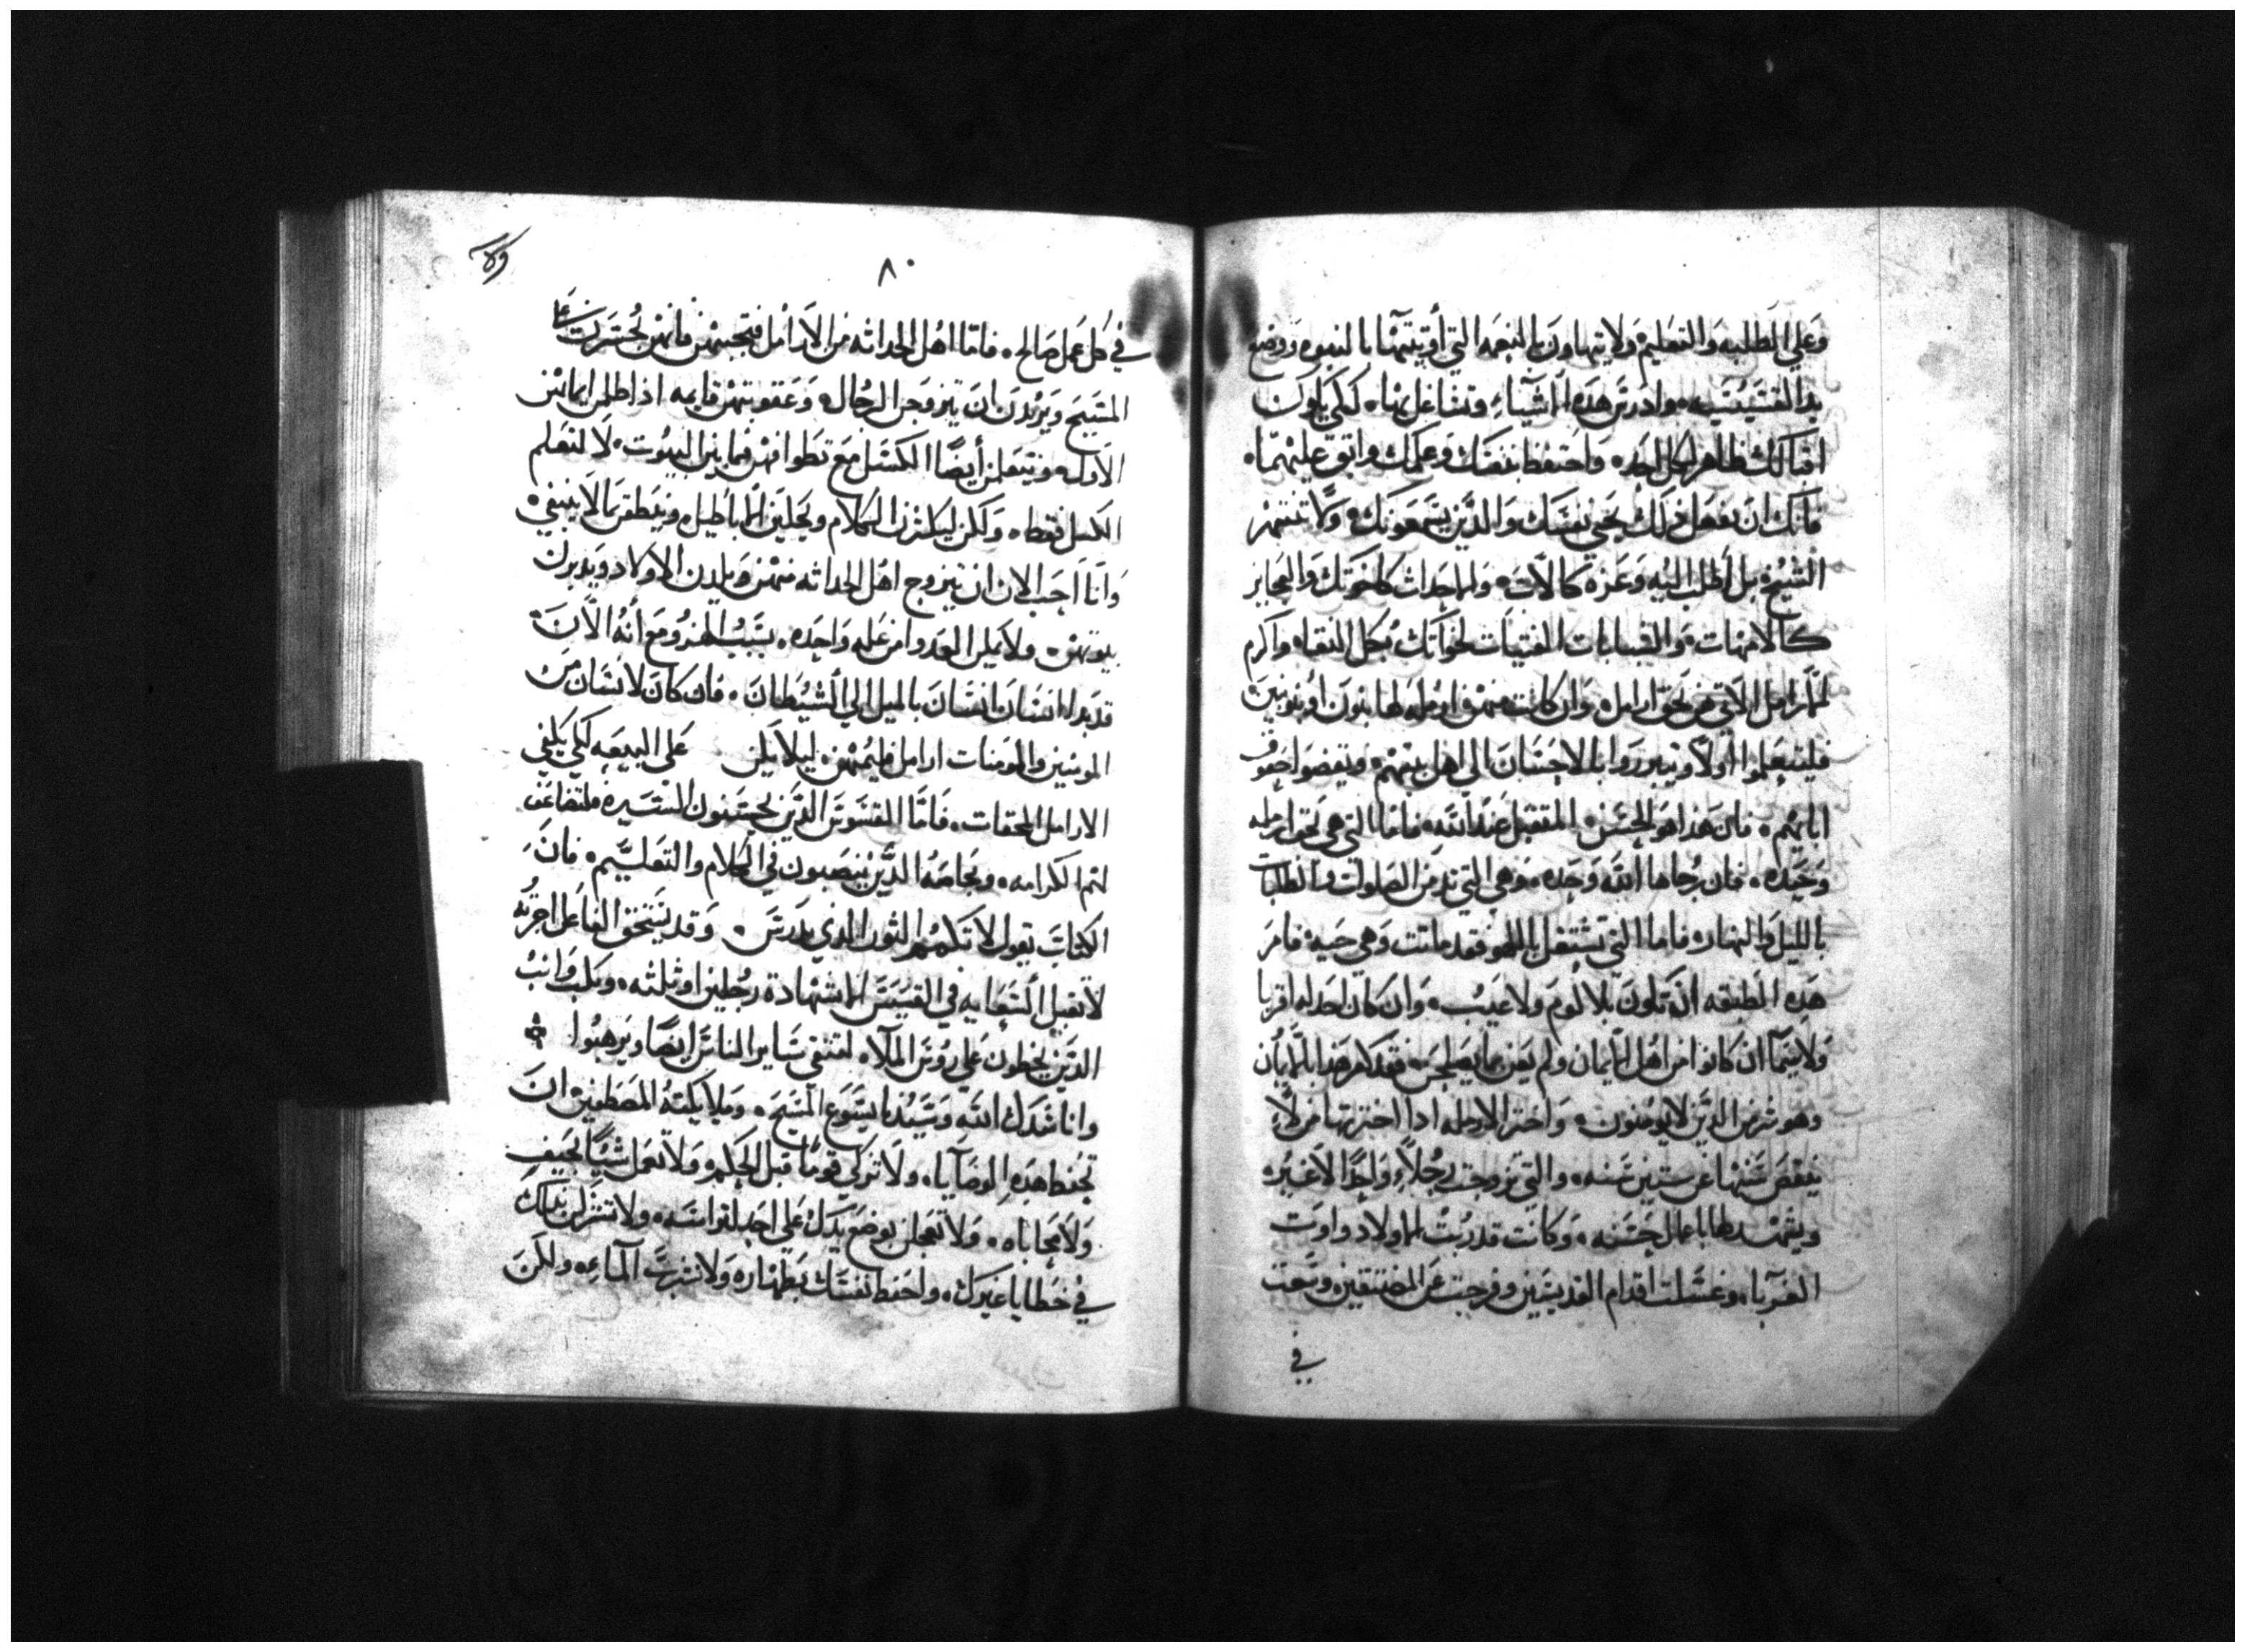 وعلي الطلبه والتعليم ولا تتهاون بالنعمه التي أوتيتها بالنبوه ووضع
يد القسيسيه وادرس هذه الاشياء وتشاغل بها لكي يكون
اقبالك ظاهرا لكل احد واحتفظ بنفسك وعلمك واتق عليهما
فانك ان تفعل ذلك تحيي نفسك والذين يسمعونك ولا تنتهر
الشيخ بل أطلب اليه وعزه كالاب والاحداث كاخوتك والعجايز
كالامهات والشابات الفتيات كخواتك بكل النقاء واكرم
الارامل اللاتي هن بحق ارامل وان كانت منهن ارمله لها بنون او بنو بنين
فليتعلموا اولا ويتبرروا بالاحسان الي اهل بيتهم ويقضوا حقوق
ابايهم فان هذا هو الحسن المتقبل عند الله فاما التي هي بحق ارمله
وحيده فان رجاها الله وحده وهي التي تدمن الصلوات والطلبات
بالليل والنهار فاما التي تشتغل باللهو فقد ماتت وهي حيه فامر
هذه الطبقه ان تكون بلا لوم ولا عيب وان كان احد له اقربا
ولا سيما ان كانوا من اهل الايمان ولم يعن بما يصلحهم فقد كفر هذا بالايمان
وهو شر من الذين لا يومنون واختر الارمله اذا اخترتها من لا
ينقص سنها عن ستين سنه والتي تزوجت رجلا واحدا لا غيره
ويشهد لها باعمال حسنه وكانت قد ربت الاولاد واوت
الغربا وغسلت اقدام القديسين وفرجت عن المضنقين وسعت
في
٨٠
في كل عمل صالح فاما اهل الحداثه من الارامل فتجنبهن فانهن يجسرن علي
المسيح ويردن ان يتزوجن الرجال وعقوبتهن قايمه اذ اظلمن ايمانهن
الاول ويتعلمن أيضا الكسل مع تطوافهن فيما بين البيوت لا لتعلم
الكسل فقط ولكن ليكثرن الكلام ويجلبن الاباطيل وينطقن بما لا ينبغي
وانا احب الان ان يتزوج اهل الحداثه منهن ويلدن الاولاد ويدبرن
بيوتهن ولا يملن العدو من عله واحده بسبب الهزو مع أنه الان
قد بدا انسان انسان بالميل الي الشيطان فان كان لانسان من
المومنين والمومنات ارامل فليمنهن ليلا يكن علي البيعه لكي تكفي
الارامل المحقات فاما القسوس الذين يحسنون السيره فلتضاعف
لهم الكرامه وبخاصه الذين ينصبون في الكلام والتعليم فان
الكتاب يقول لا تكم الثور الذي يدرس وقد يستحق الفاعل اجرته
لا تقبل السعايه في القسيس الا بشهادة رجلين او ثلثه وبكت وانب
الذين يخطون علي روس الملا لتتقي ساير الناس ايضا ويرهبوا
وانا شدك الله وسيدنا يسوع المسيح وملايكته المصطفين ان
تحفظ هذه الوصايا ولا تزكي قوما قبل الحكم ولا تعمل شيا بحيف
ولا محاباه ولا تعجلن بوضع يدك علي احد لتراسه ولا تشترك
في خطايا غيرك واحفظ نفسك بطهاره ولا تشرب الماء ولكن